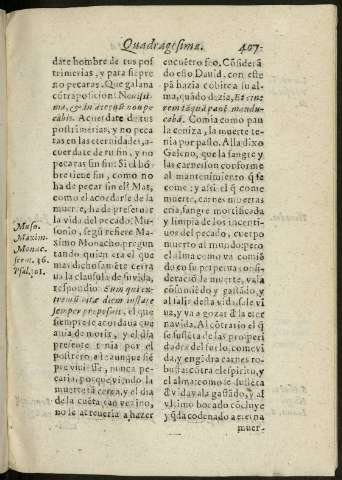 Quadragesima. 407.
date hombre de tus pos
trimerias, y para siẽpre
no pecaras. Que galana
cõtraposicion! Novissi
ma, & in æternũ non pe
cabis. Acuerdate de tus
postrimerias, y no peca
ras en las eternidades, a-
cuerdate de tu fin, y no
pecaras sin fin: Si el hõ-
bre tiene fin, como no
ha de pecar sin el? Mas,
como el acordarse de la
muerte, ha de preservar
la vida del pecado; Mu-
sonio, segũ refiere Ma-
ximo Monacho, pregun
tando quien era el que
mas dichosamẽte cerra
va la clausula de su vida,
respondio: Eum qui ex-
tremũ vitæ diem instare
semper proposuit, el que
siempre se acordava que
avia de morir, y el dia
presente tenia por el
postrero, este aunque siẽ
pre viviesse, nunca pe-
caria, porque viendo la
muerte tã cerca, y el dia
de la cuẽta tan vezino,
no se atreveria a hazer
Muso.
Maxim.
Monac.
serm. 36.
Psal. 101.
encuẽtro feo. Cõsiderã
do esto David, con este
pã hazia cobrira su al-
ma, quãdo dezia, Et cine
rem tãquã panẽ mandu-
cabã. Comia como pan
la ceniza, la muerte te-
nia por pasto. Alla dixo
Galeno, que la sangre y
las carnes son conforme
al mantenimiento q̃ se
come: y assi el q̃ come
muerte, carnes muertas
cria, sangre mortificada
y limpia de los incenti-
vos del pecado, cuerpo
muerto al mundo: pero
el alma como va comiẽ
do en su perpetua consi-
deraciõ la muerte, va la
cõsumiẽdo y gastãdo, y
al salir desta vida, sale vi
va, y va a gozar d̃ la eter
na vida. Al cõtrario el q̃
se sustẽta de las prosperi
dades del suelo, come vi
da, y engẽdra carnes ro-
bustas cõtra el espiritu, y
el alma como se sustẽta
d̃ vida va la gastãdo, y al
vltimo bocado cõcluye
y q̃da codenado a eterna
muer-